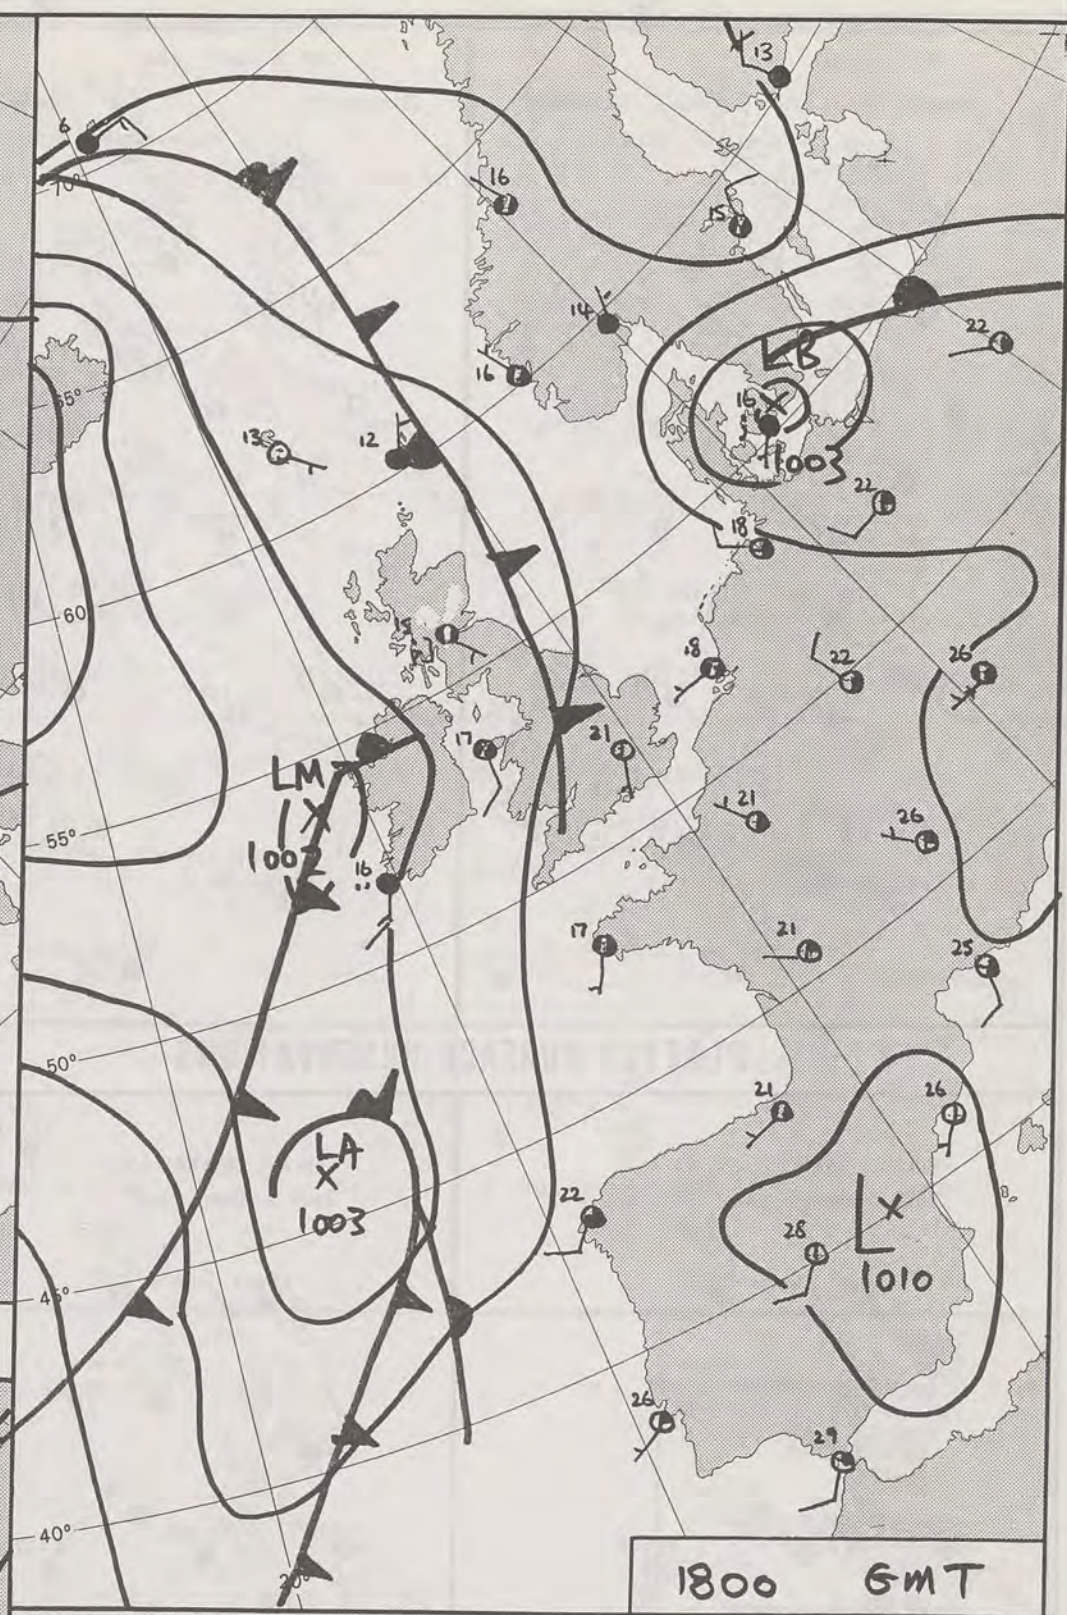 13
6
70°
16
15
14
22
16
LB
16
1003
65°
13
12
22
18
60
15
18
22
26
17
21
LM
1002
21
26
55°
16
17
21
25
50°
21
26
LA
1003
22
28
L
1010
45°
26
29
40°
20°
1800 GMT